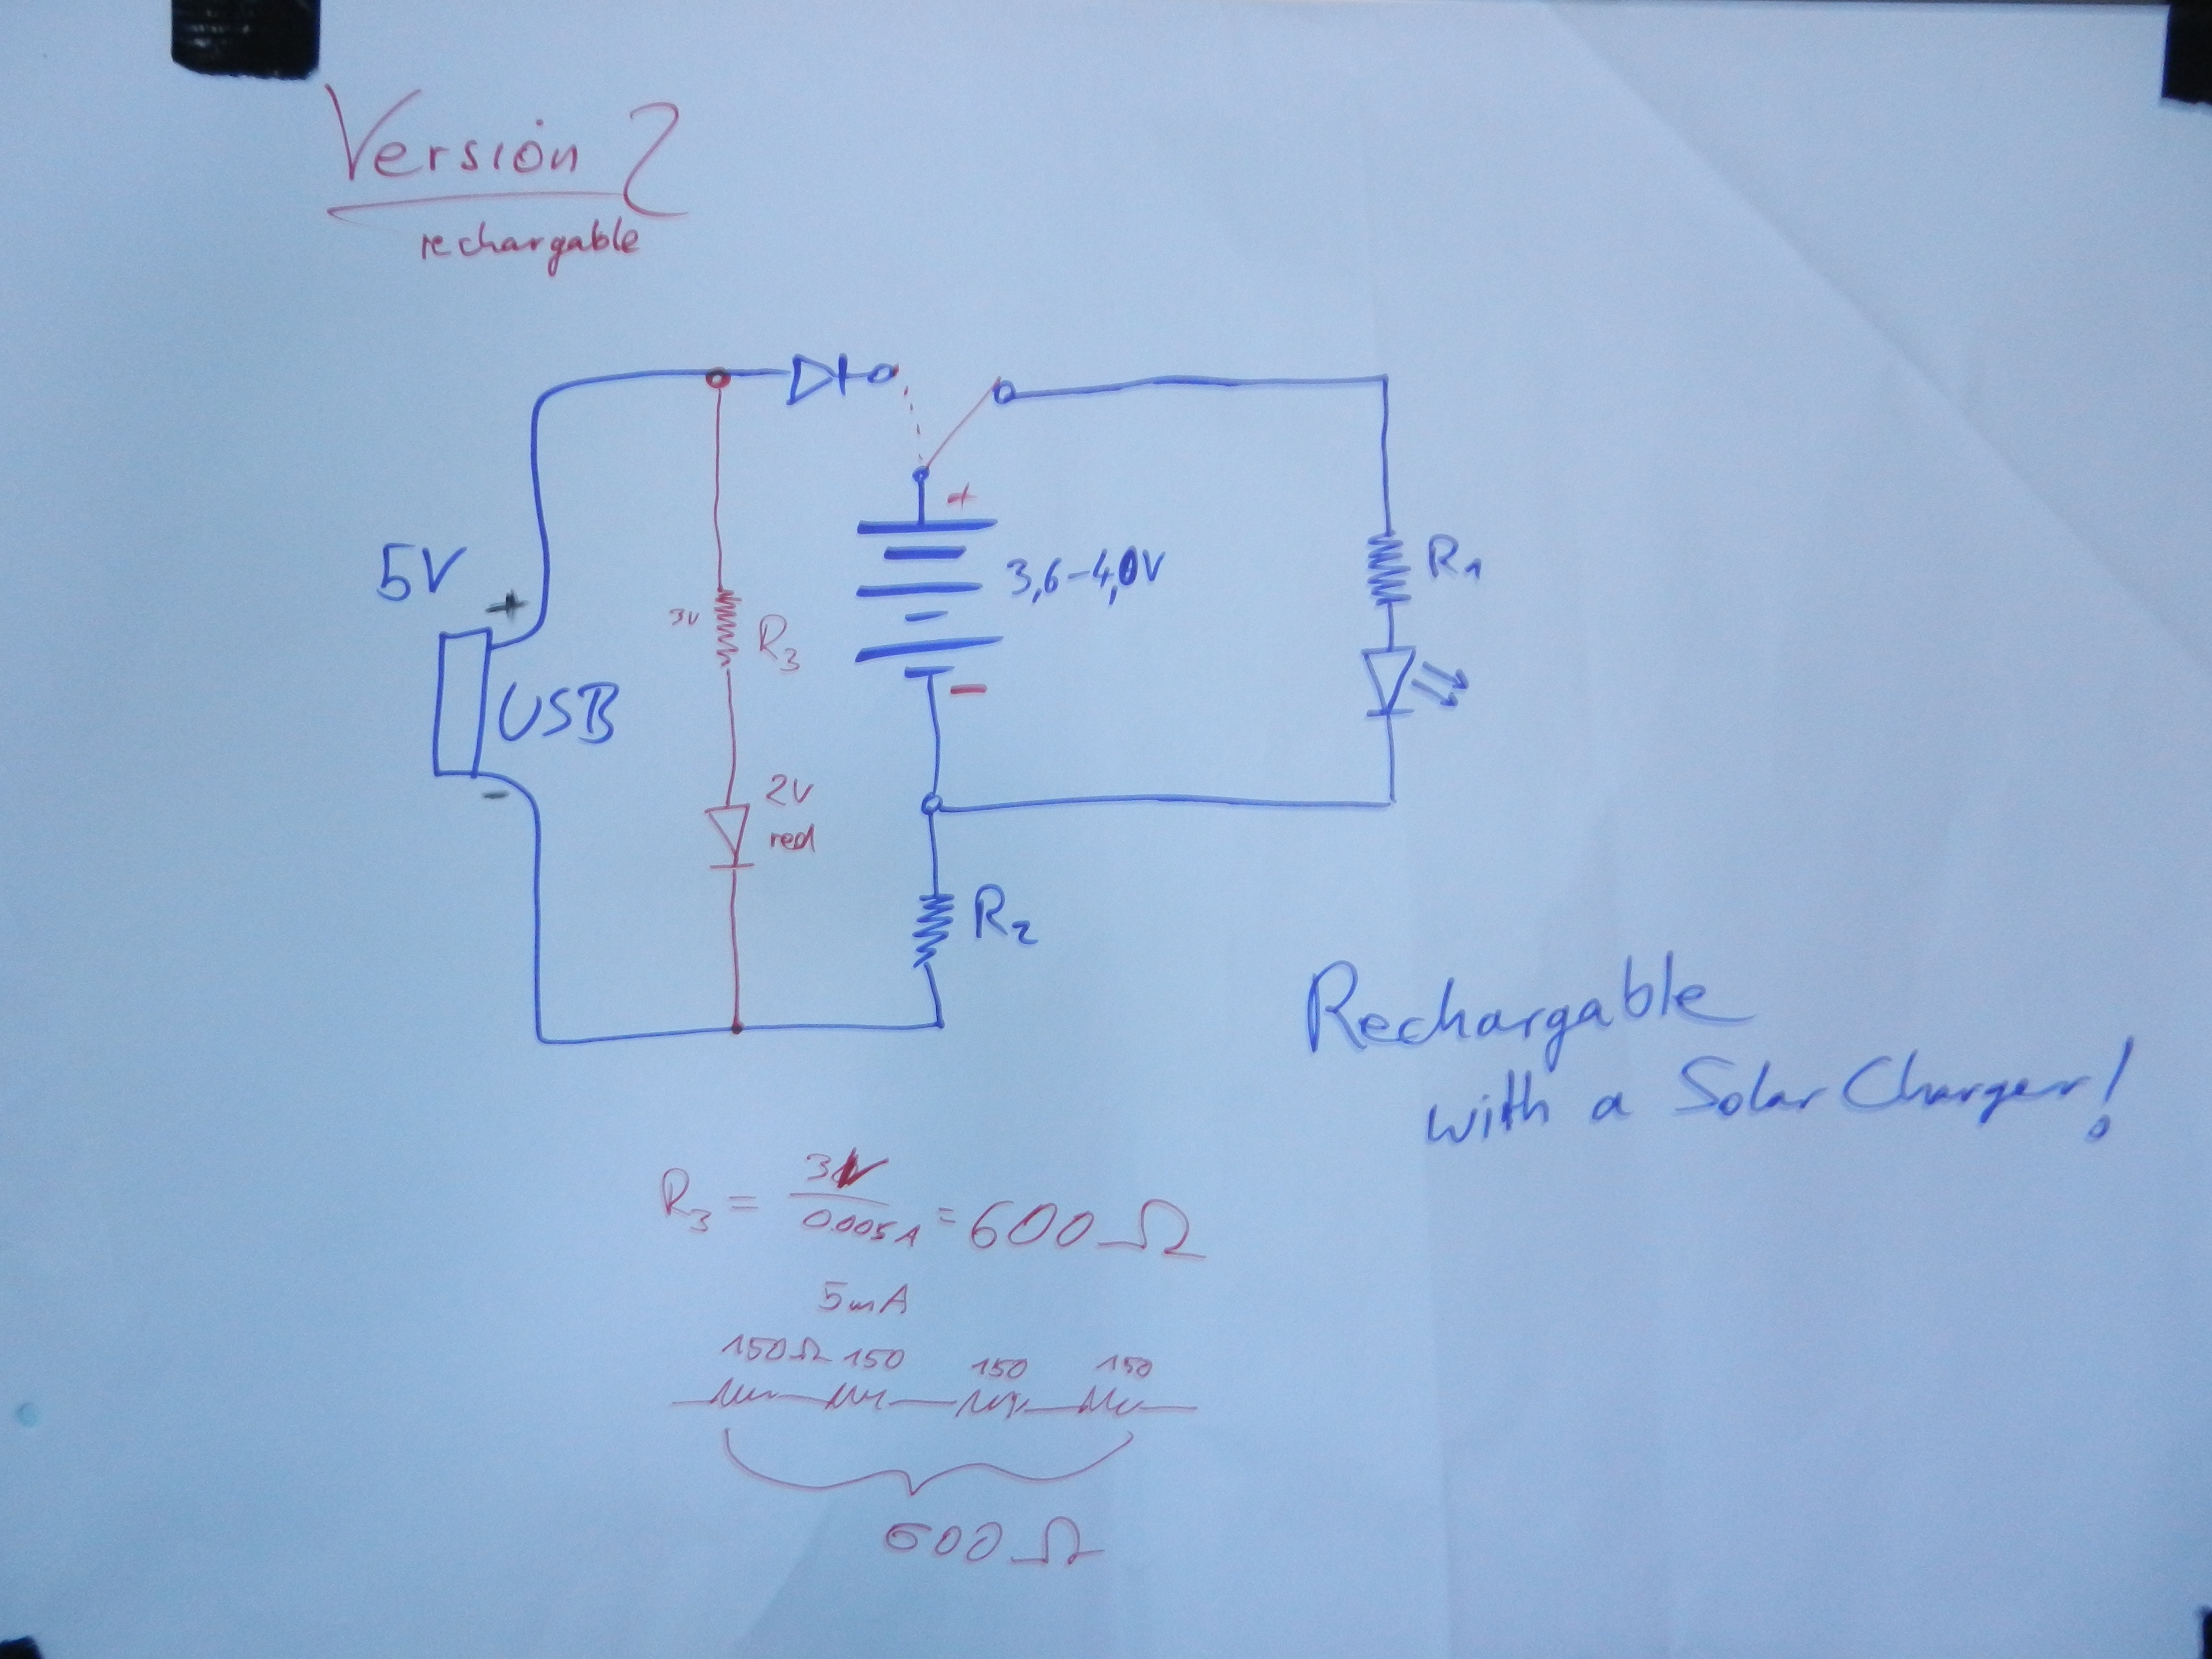 Version 2
rechargable
5V
+
USB
-
3V
R3
2V
red
+
3,6-4,0V
-
R1
R2
Rechargable
with a Solar Charger!
R3 = 3V / 0.005A = 600 Ω
5mA
150Ω 150 150 150
600 Ω